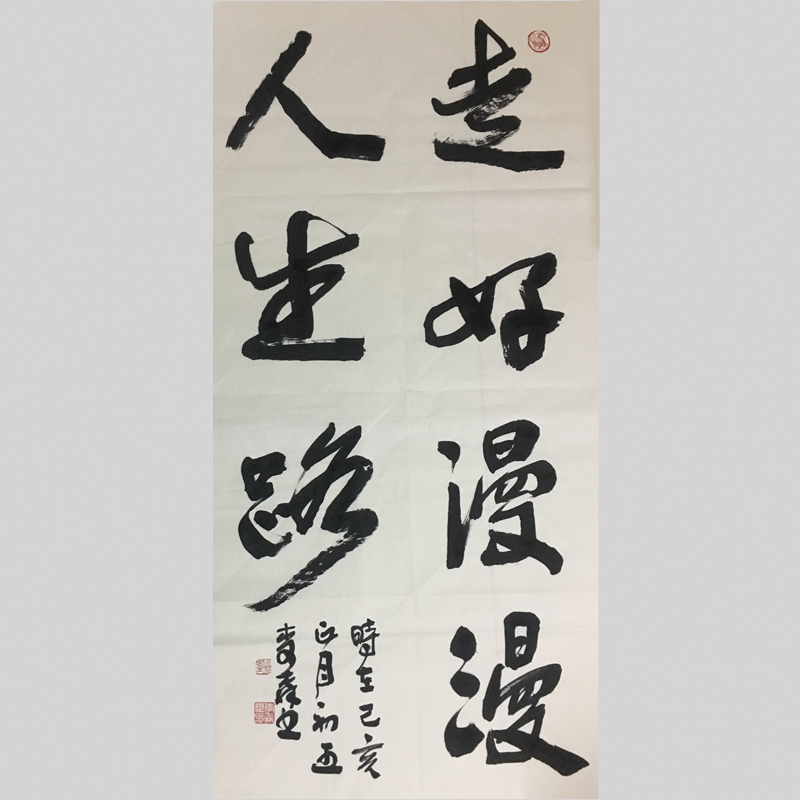 走好漫漫
人生路
時在己亥
正月初五
春森书